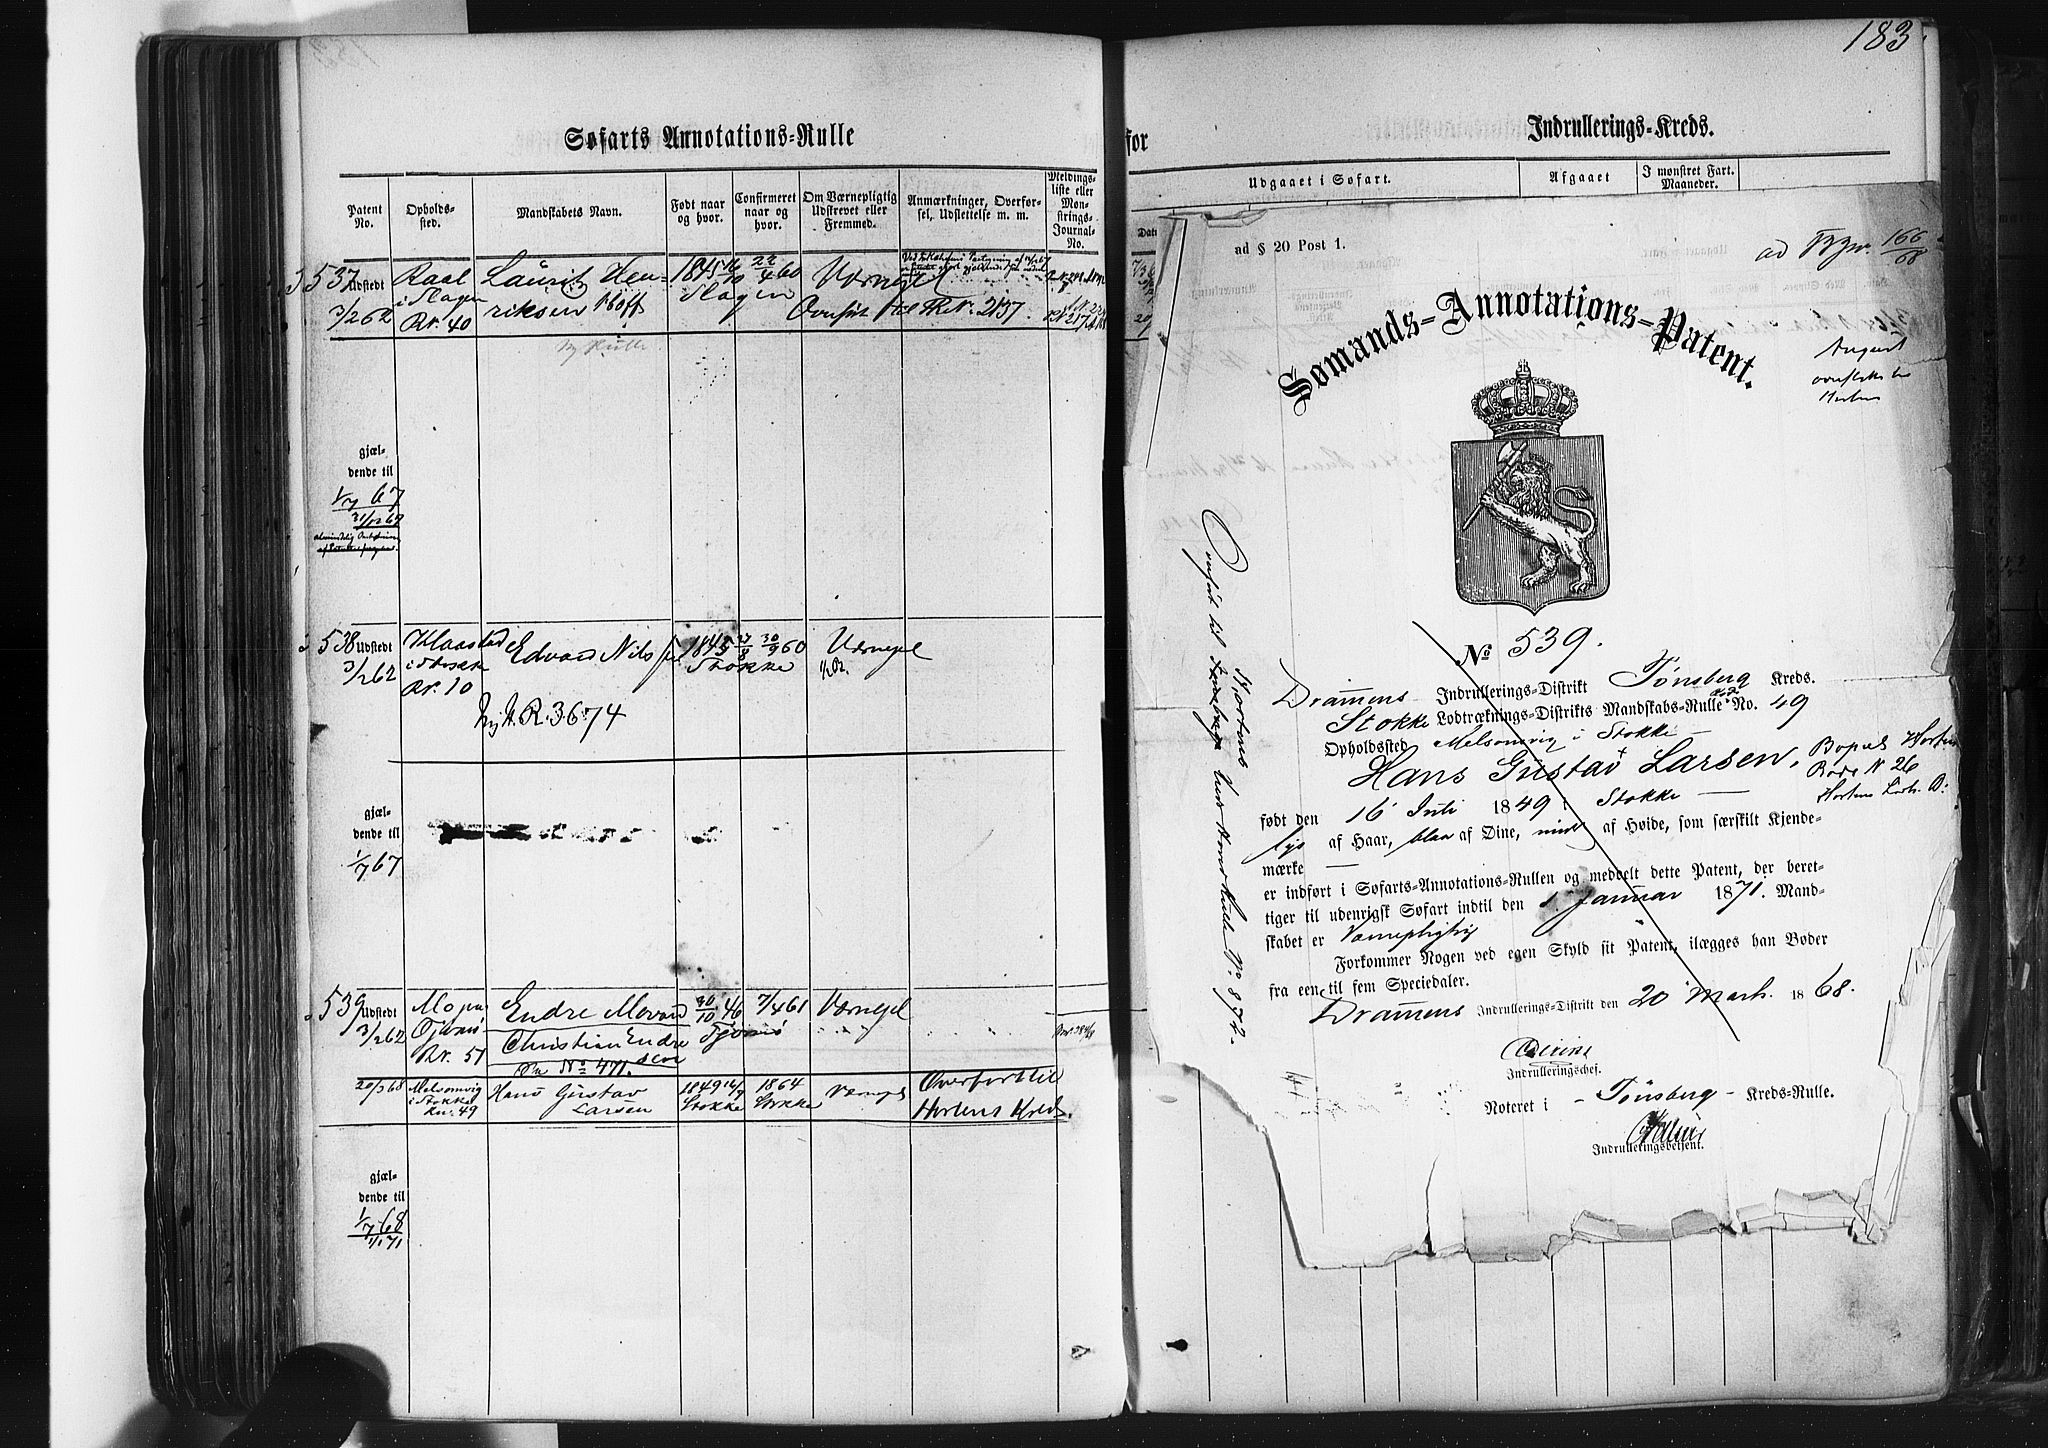 183
Søfarts Annotations-Rulle
Patent No.
Opholds-sted.
Mandskabets Navn.
Født naar og hvor.
Confirmeret naar og hvor.
Om Værnepligtig Udskrevet eller Fremmed.
Anmærkninger, Overførsel, Udslettelse m. m.
Meldings-liste eller Mønstrings-Journal-No.
537 Udstedt 3/2 62
Raal i Slagen Rr. 40
Laurits Henriksen
1845 16/10 Slagen
22/4 60
Værnepl
Overført til R No. 2137.
gjældende til
1/7 67
31/12 69
538 Udstedt 3/2 62
Klaastad i Stokke Rr. 10
Edvard Nils
1845 27/8 Stokke
30/9 60
Værnepl
Ny N. R. 3674
gjældende til
1/7 67
539 Udstedt 3/2 62
Tjømø Rr. 51
Endre
Christian Endresen
No 471.
30/10 46 Tjømø
7/4 61
Værnepl
20/3 68
Melsomvig i Stokke Rr. 49
Hans Gustav Larsen
1849 16/7 Stokke
1864 Stokke
Værnepl
Overført til Hortens Kreds.
gjældende til
1/7 68
1/1 71
for
Indrullerings-Kreds.
Udgaaet i Søfart.
Afgaaet
I mønstret Fart. Maaneder.
ad § 20 Post 1.
166/68
Sømands-Annotations-Patent.
August
No 539.
Drammens Indrullerings-Distrikt Tønsberg Kreds.
Stokke Lodtræknings-Distrikts Mandskabs-Rulle No. 49
Opholdssted Melsomvig i Stokke
Hans Gustav Larsen,
Bopæl Horten
Rode N 26
født den 16 Juli 1849 i Stokke
lys af Haar, blaa af Øine, af Høide, som særskilt Kjende-
mærke
er indført i Søfarts-Annotations-Rullen og meddelt dette Patent, der beret-
tiger til udenrigsk Søfart indtil den 1 Januar 1871. Mand-
skabet er Værnepligtig
Forkommer Nogen ved egen Skyld sit Patent, ilægges han Bøder
fra een til fem Speciedaler.
Drammens Indrullerings-Distrikt den 20 Marts 1868.
Indrulleringschef.
Noteret i Tønsberg Kreds-Rulle.
Indrulleringsbetjent.
Overført til Hortens No. 872.